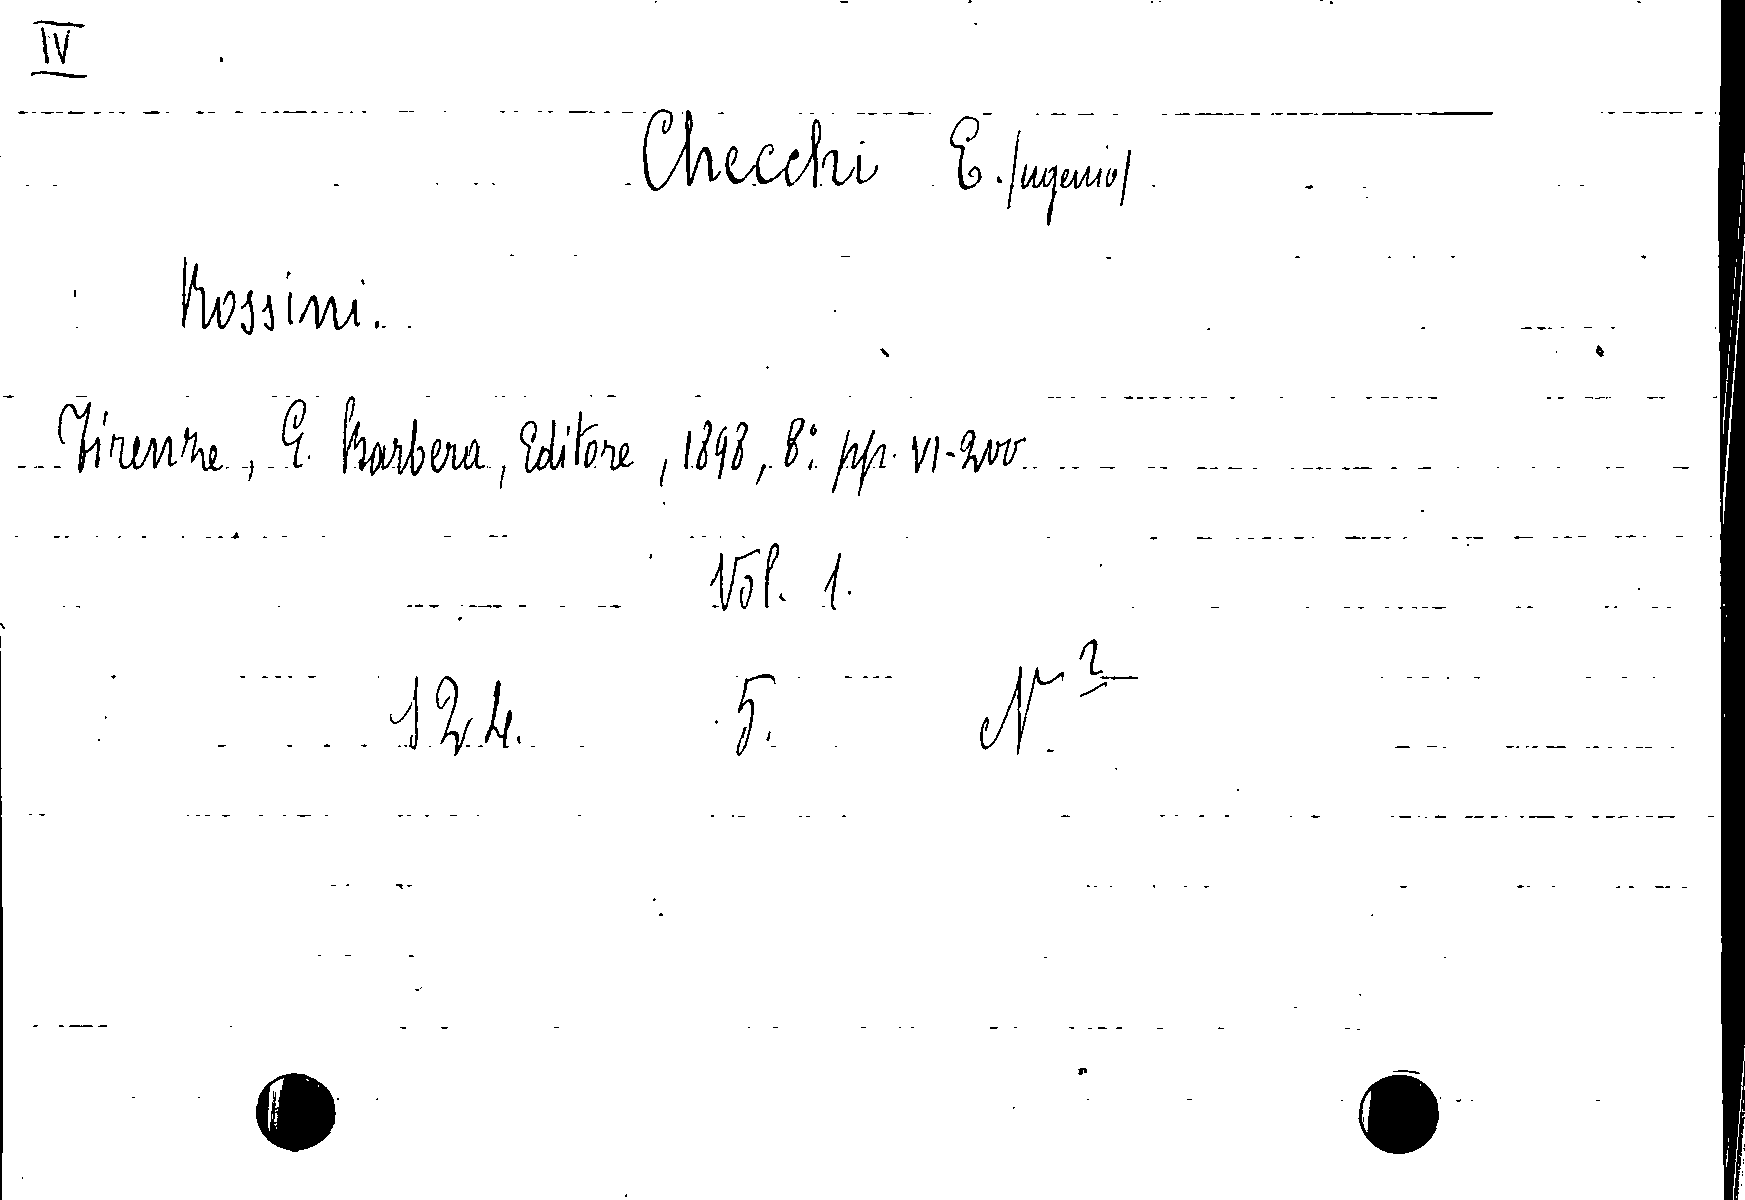 IV
Checchi E. /ugenio/
Rossini.
Firenze, G. Barbera, Editore, 1898, 8°. pp. VI-200
Vol. 1.
124. 5. N 2